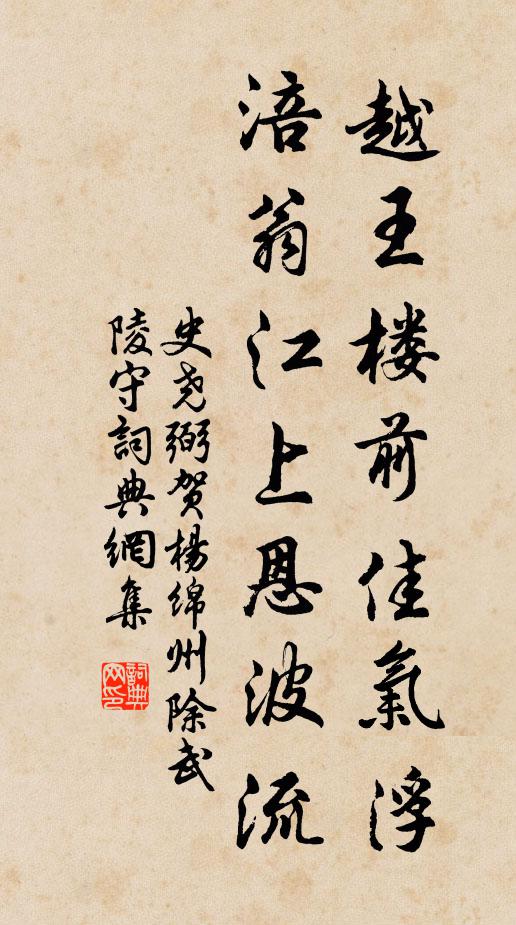 越王楼前佳氣浮
涪翁江上恩波流
史尧弼贺楊绵州除武
陵守詞典網集
詞典网印